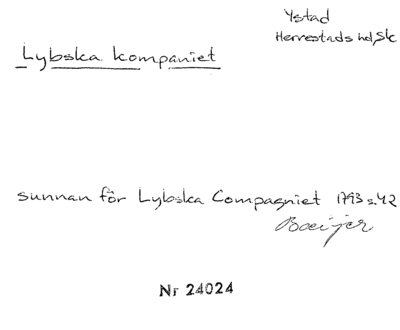 Ystad
Herrestads hd, Sk
Lybska kompaniet
sunnan för Lybska Compagniet 1793 s. 42
Boeijer
Nr 24024